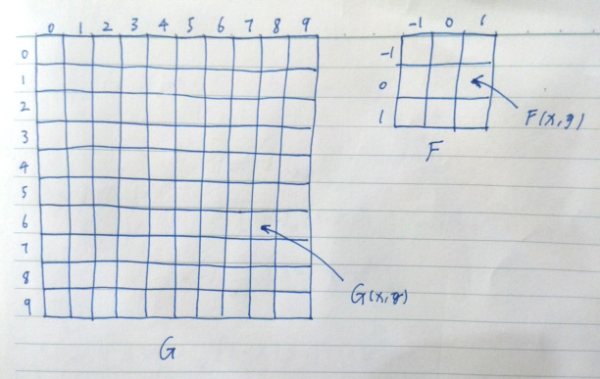 0 1 2 3 4 5 6 7 8 9
0
1
2
3
4
5
6
7
8
9
G(x,y)
G
-1 0 1
-1
0
1
F(x,y)
F